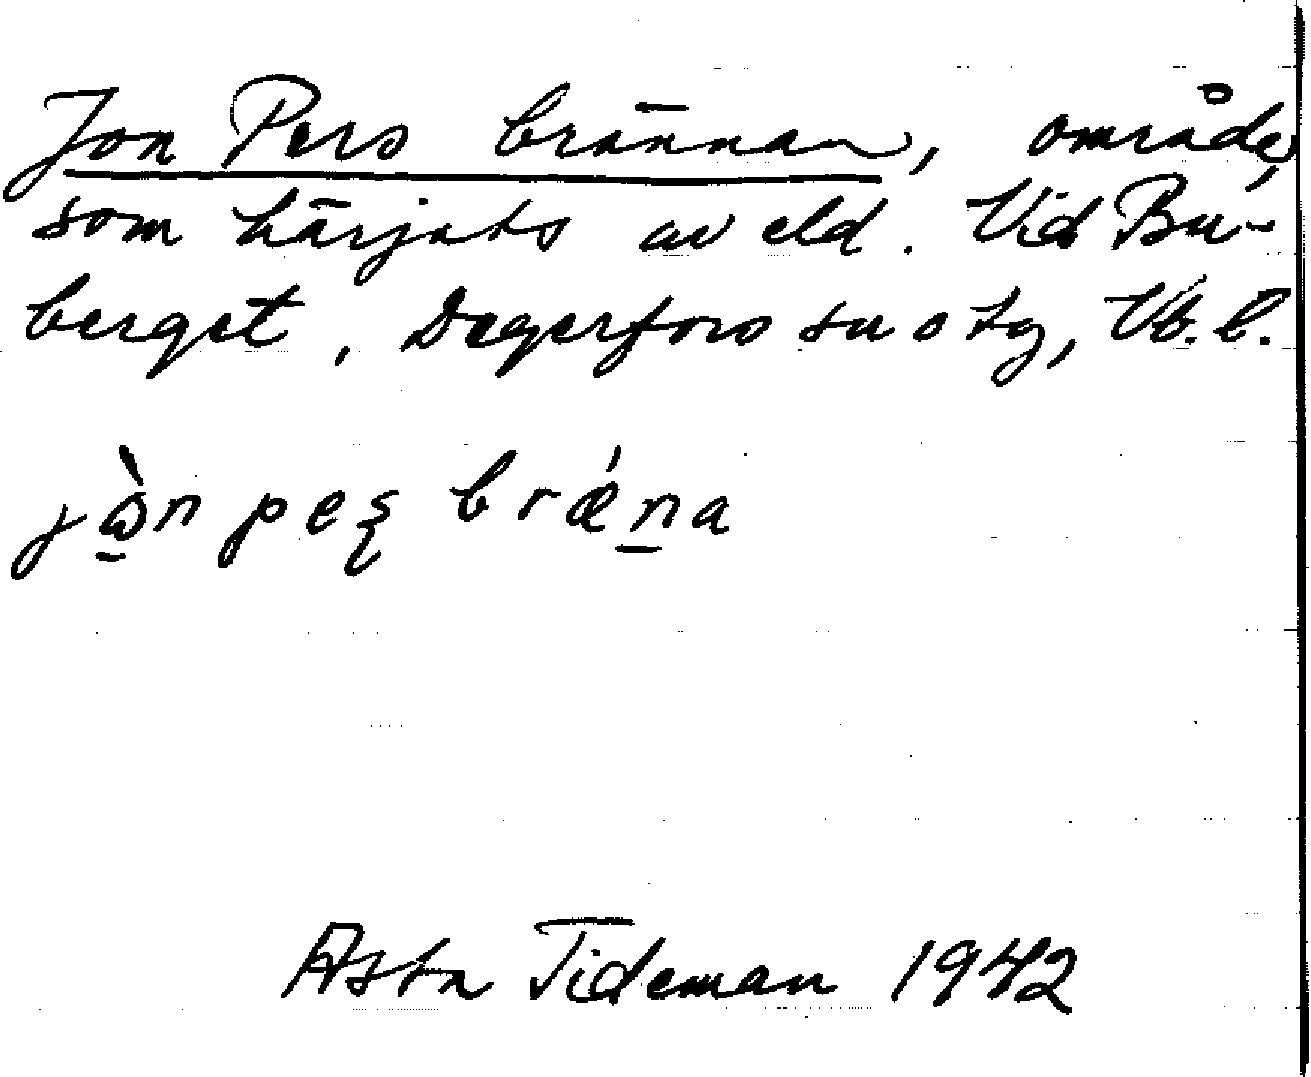 Jon Pers brännan, område,
som härjats av eld. Vid Bu-
berget, Degerfors sn o tg, Vb. l.
jὼ̱n peʂ brǽṉa
Asta Tideman 1942